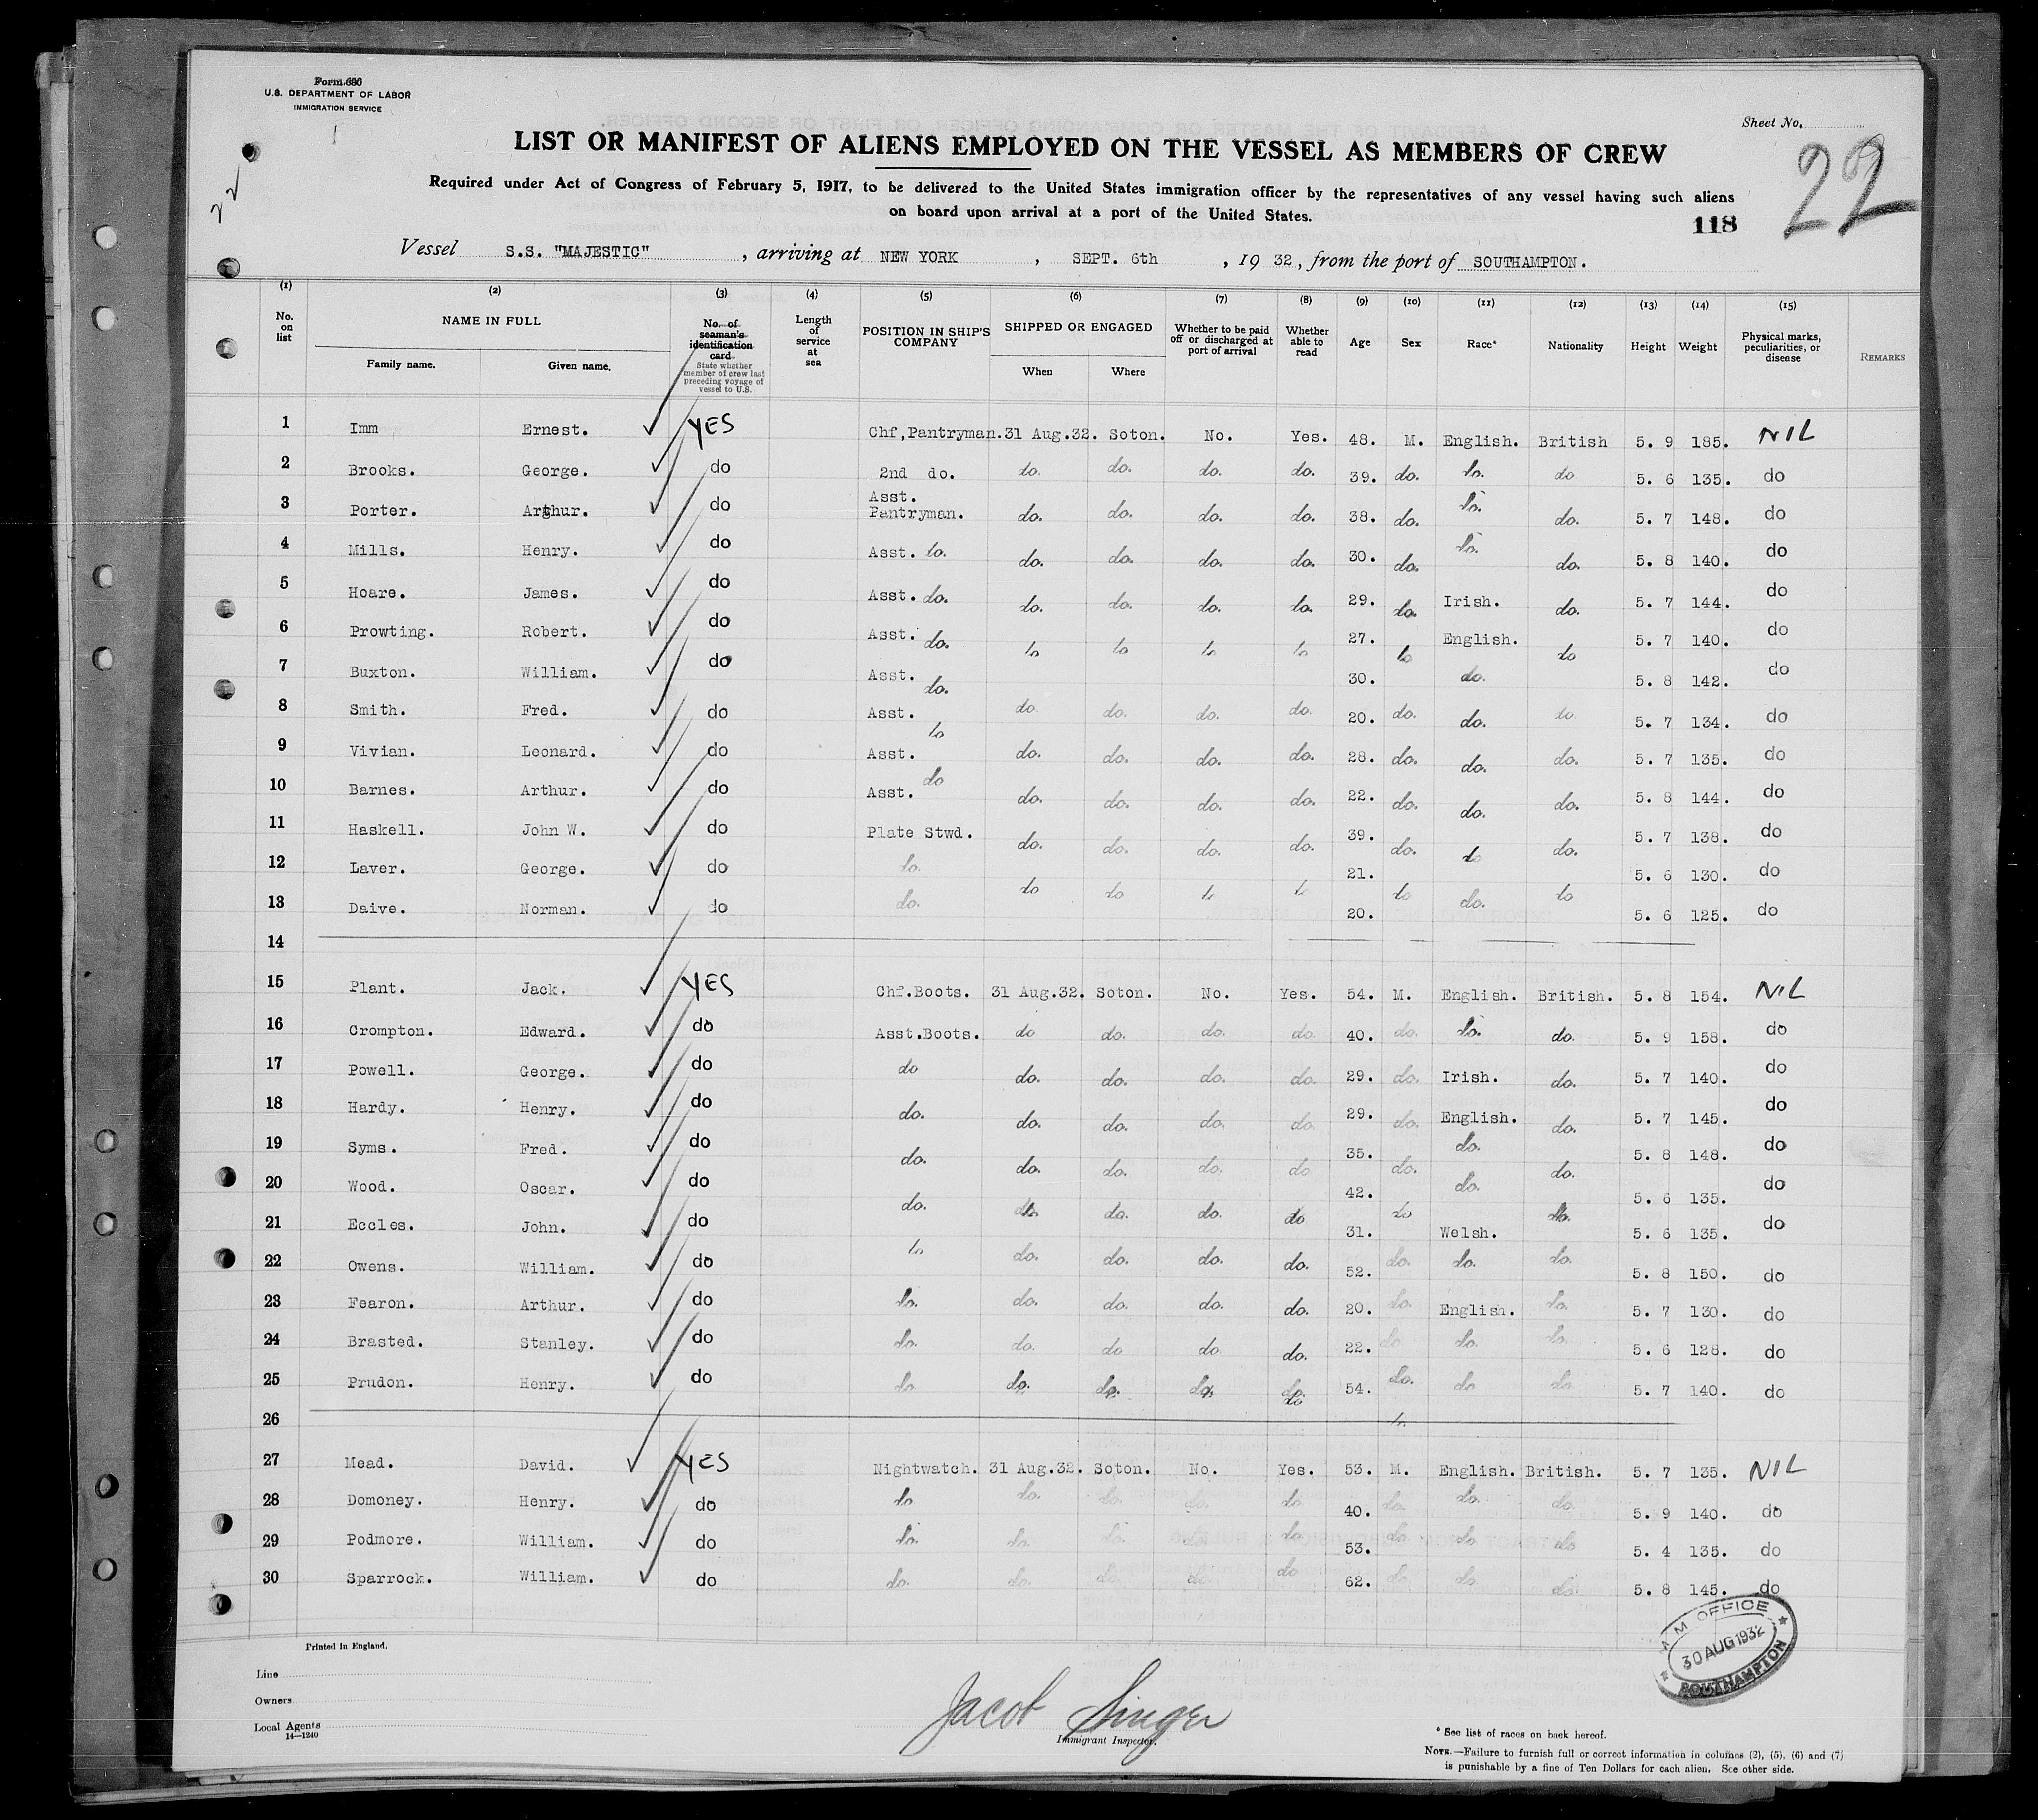 Form 680
U.S. DEPARTMENT OF LABOR
IMMIGRATION SERVICE
Sheet No.
22
22
LIST OR MANIFEST OF ALIENS EMPLOYED ON THE VESSEL AS MEMBERS OF CREW
Required under Act of Congress of February 5, 1917, to be delivered to the United States immigration officer by the representatives of any vessel having such aliens
on board upon arrival at a port of the United States.
118
Vessel S.S. "MAJESTIC" , arriving at NEW YORK , SEPT. 6th , 19 32, from the port of SOUTHAMPTON.
(1) (2) (3) (4) (5) (6) (7) (8) (9) (10) (11) (12) (13) (14) (15)
No. on list NAME IN FULL Family name. Given name. No. of seaman's identification card State whether member of crew last preceding voyage of vessel to U.S. Length of service at sea POSITION IN SHIP'S COMPANY SHIPPED OR ENGAGED When Where Whether to be paid off or discharged at port of arrival Whether able to read Age Sex Race* Nationality Height Weight Physical marks, peculiarities, or disease REMARKS
1 Imm Ernest. YES Chf,Pantryman. 31 Aug.32. Soton. No. Yes. 48. M. English. British 5. 9 185. NIL
2 Brooks. George. do 2nd do. do. do. do. do. 39. do. do. do 5. 6 135. do
3 Porter. Arthur. do Asst. Pantryman. do. do. do. do. 38. do. do. do. 5. 7 148. do
4 Mills. Henry. do Asst. do. do. do. do. do. 30. do. do. do. 5. 8 140. do
5 Hoare. James. do Asst. do. do. do. do. do. 29. do. Irish. do. 5. 7 144. do
6 Prowting. Robert. do Asst. do. do do do do 27. do English. do 5. 7 140. do
7 Buxton. William. do Asst. do. 30. do. 5. 8 142. do
8 Smith. Fred. do Asst. do do. do. do. do. 20. do. do. do. 5. 7 134. do
9 Vivian. Leonard. do Asst. do do. do. do. do. 28. do. do. do. 5. 7 135. do
10 Barnes. Arthur. do Asst. do. do. do. do. 22. do. do. do. 5. 8 144. do
11 Haskell. John W. do Plate Stwd. do. do. do. do. 39. do. do do. 5. 7 138. do
12 Laver. George. do do. do do do do 21. do do 5. 6 130. do
13 Daive. Norman. do do. 20. do. 5. 6 125. do
14
15 Plant. Jack. YES Chf.Boots. 31 Aug.32. Soton. No. Yes. 54. M. English. British. 5. 8 154. NIL
16 Crompton. Edward. do Asst.Boots. do do. do. do. 40. do. do. do. 5. 9 158. do
17 Powell. George. do do do. do. do. do. 29. do. Irish. do. 5. 7 140. do
18 Hardy. Henry. do do. do. do. do. do. 29. do. English. do. 5. 7 145. do
19 Syms. Fred. do do. do. do. do. do 35. do. do. do. 5. 8 148. do
20 Wood. Oscar. do do. do. do. do. do 42. do do. do. 5. 6 135. do
21 Eccles. John. do do 31. Welsh. 5. 6 135. do
22 Owens. William. do do. do. do. do. 52. do. do. do. 5. 8 150. do
23 Fearon. Arthur. do do. do. do. do. do. 20. do. English. do. 5. 7 130. do
24 Brasted. Stanley. do do. do. do do do. 22. do do. do. 5. 6 128. do
25 Prudon. Henry. do do do. do. do. do. do 54. do. do do 5. 7 140. do
26 do.
27 Mead. David. YES Nightwatch. 31 Aug.32. Soton. No. Yes. 53. M. English. British. 5. 7 135. NIL
28 Domoney. Henry. do do do. do. do. do 40. do. do. do. 5. 9 140. do
29 Podmore. William. do do. do. do. do. do 53. do. do do 5. 4 135. do
30 Sparrock. William. do do. do. do. do. do 62. do do do. 5. 8 145. do
M OFFICE
30 AUG 1932
SOUTHAMPTON
Printed in England.
Line
Owners
Local Agents
14—1240
Jacob Singer
Immigrant Inspector.
* See list of races on back hereof.
NOTE.—Failure to furnish full or correct information in columns (2), (5), (6) and (7)
is punishable by a fine of Ten Dollars for each alien. See other side.